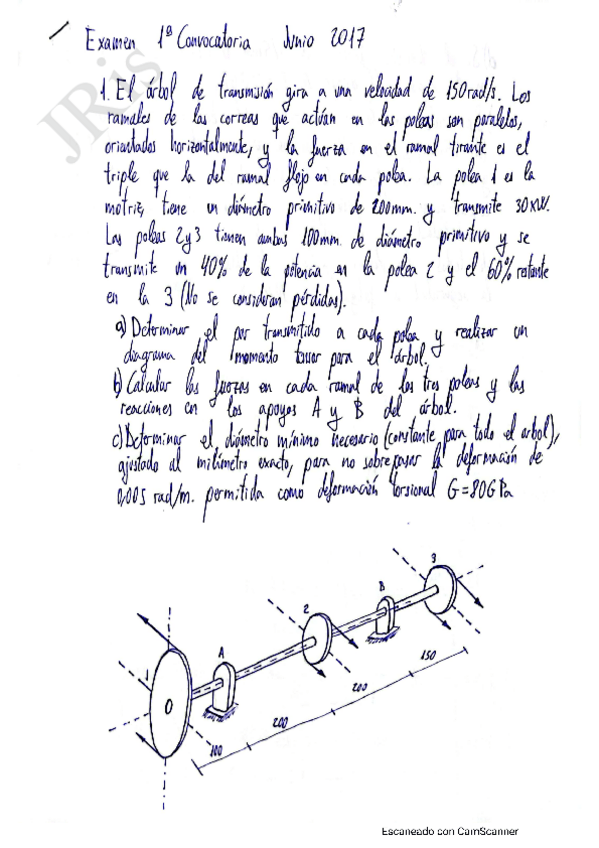 Examen 1ª Convocatoria Junio 2017
JRis
1. El árbol de transmisión gira a una velocidad de 150 rad/s. Los
ramales de las correas que actúan en las poleas son paralelos,
orientados horizontalmente, y la fuerza en el ramal tirante es el
triple que la del ramal flojo en cada polea. La polea 1 es la
motriz, tiene un diámetro primitivo de 200mm. y transmite 30 KW.
Las poleas 2 y 3 tienen ambas 100mm. de diámetro primitivo y se
transmite un 40% de la potencia en la polea 2 y el 60% restante
en la 3 (No se consideran pérdidas).
a) Determinar el par transmitido a cada polea y realizar un
diagrama del momento torsor para el árbol.
b) Calcular las fuerzas en cada ramal de las tres poleas y las
reacciones en los apoyos A y B del árbol.
c) Determinar el diámetro mínimo necesario (constante para todo el arbol),
ajustado al milímetro exacto, para no sobrepasar la deformación de
0,005 rad/m. permitida como deformación torsional G=80GPa
3
B
2
A
1
150
200
200
100
Escaneado con CamScanner